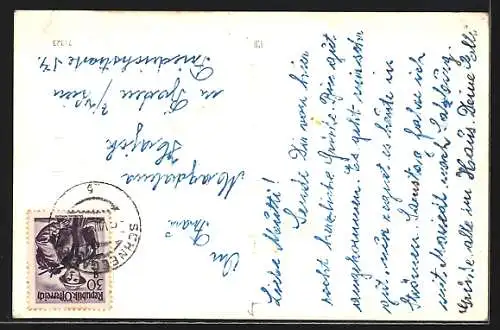 Liebe Mutti!
Sende Dir von hier
recht herzliche Grüße Bin gut
angekommen. Es geht mir sehr
gut, nur regnet es heute in
Strömen. Samstag fahre ich
mit nach Salzburg.
Grüße alle im Haus. Deine Elli
An
Frau
Magdalena
in
Friedrichstraße
30
Republik Österreich
SCHNEEG